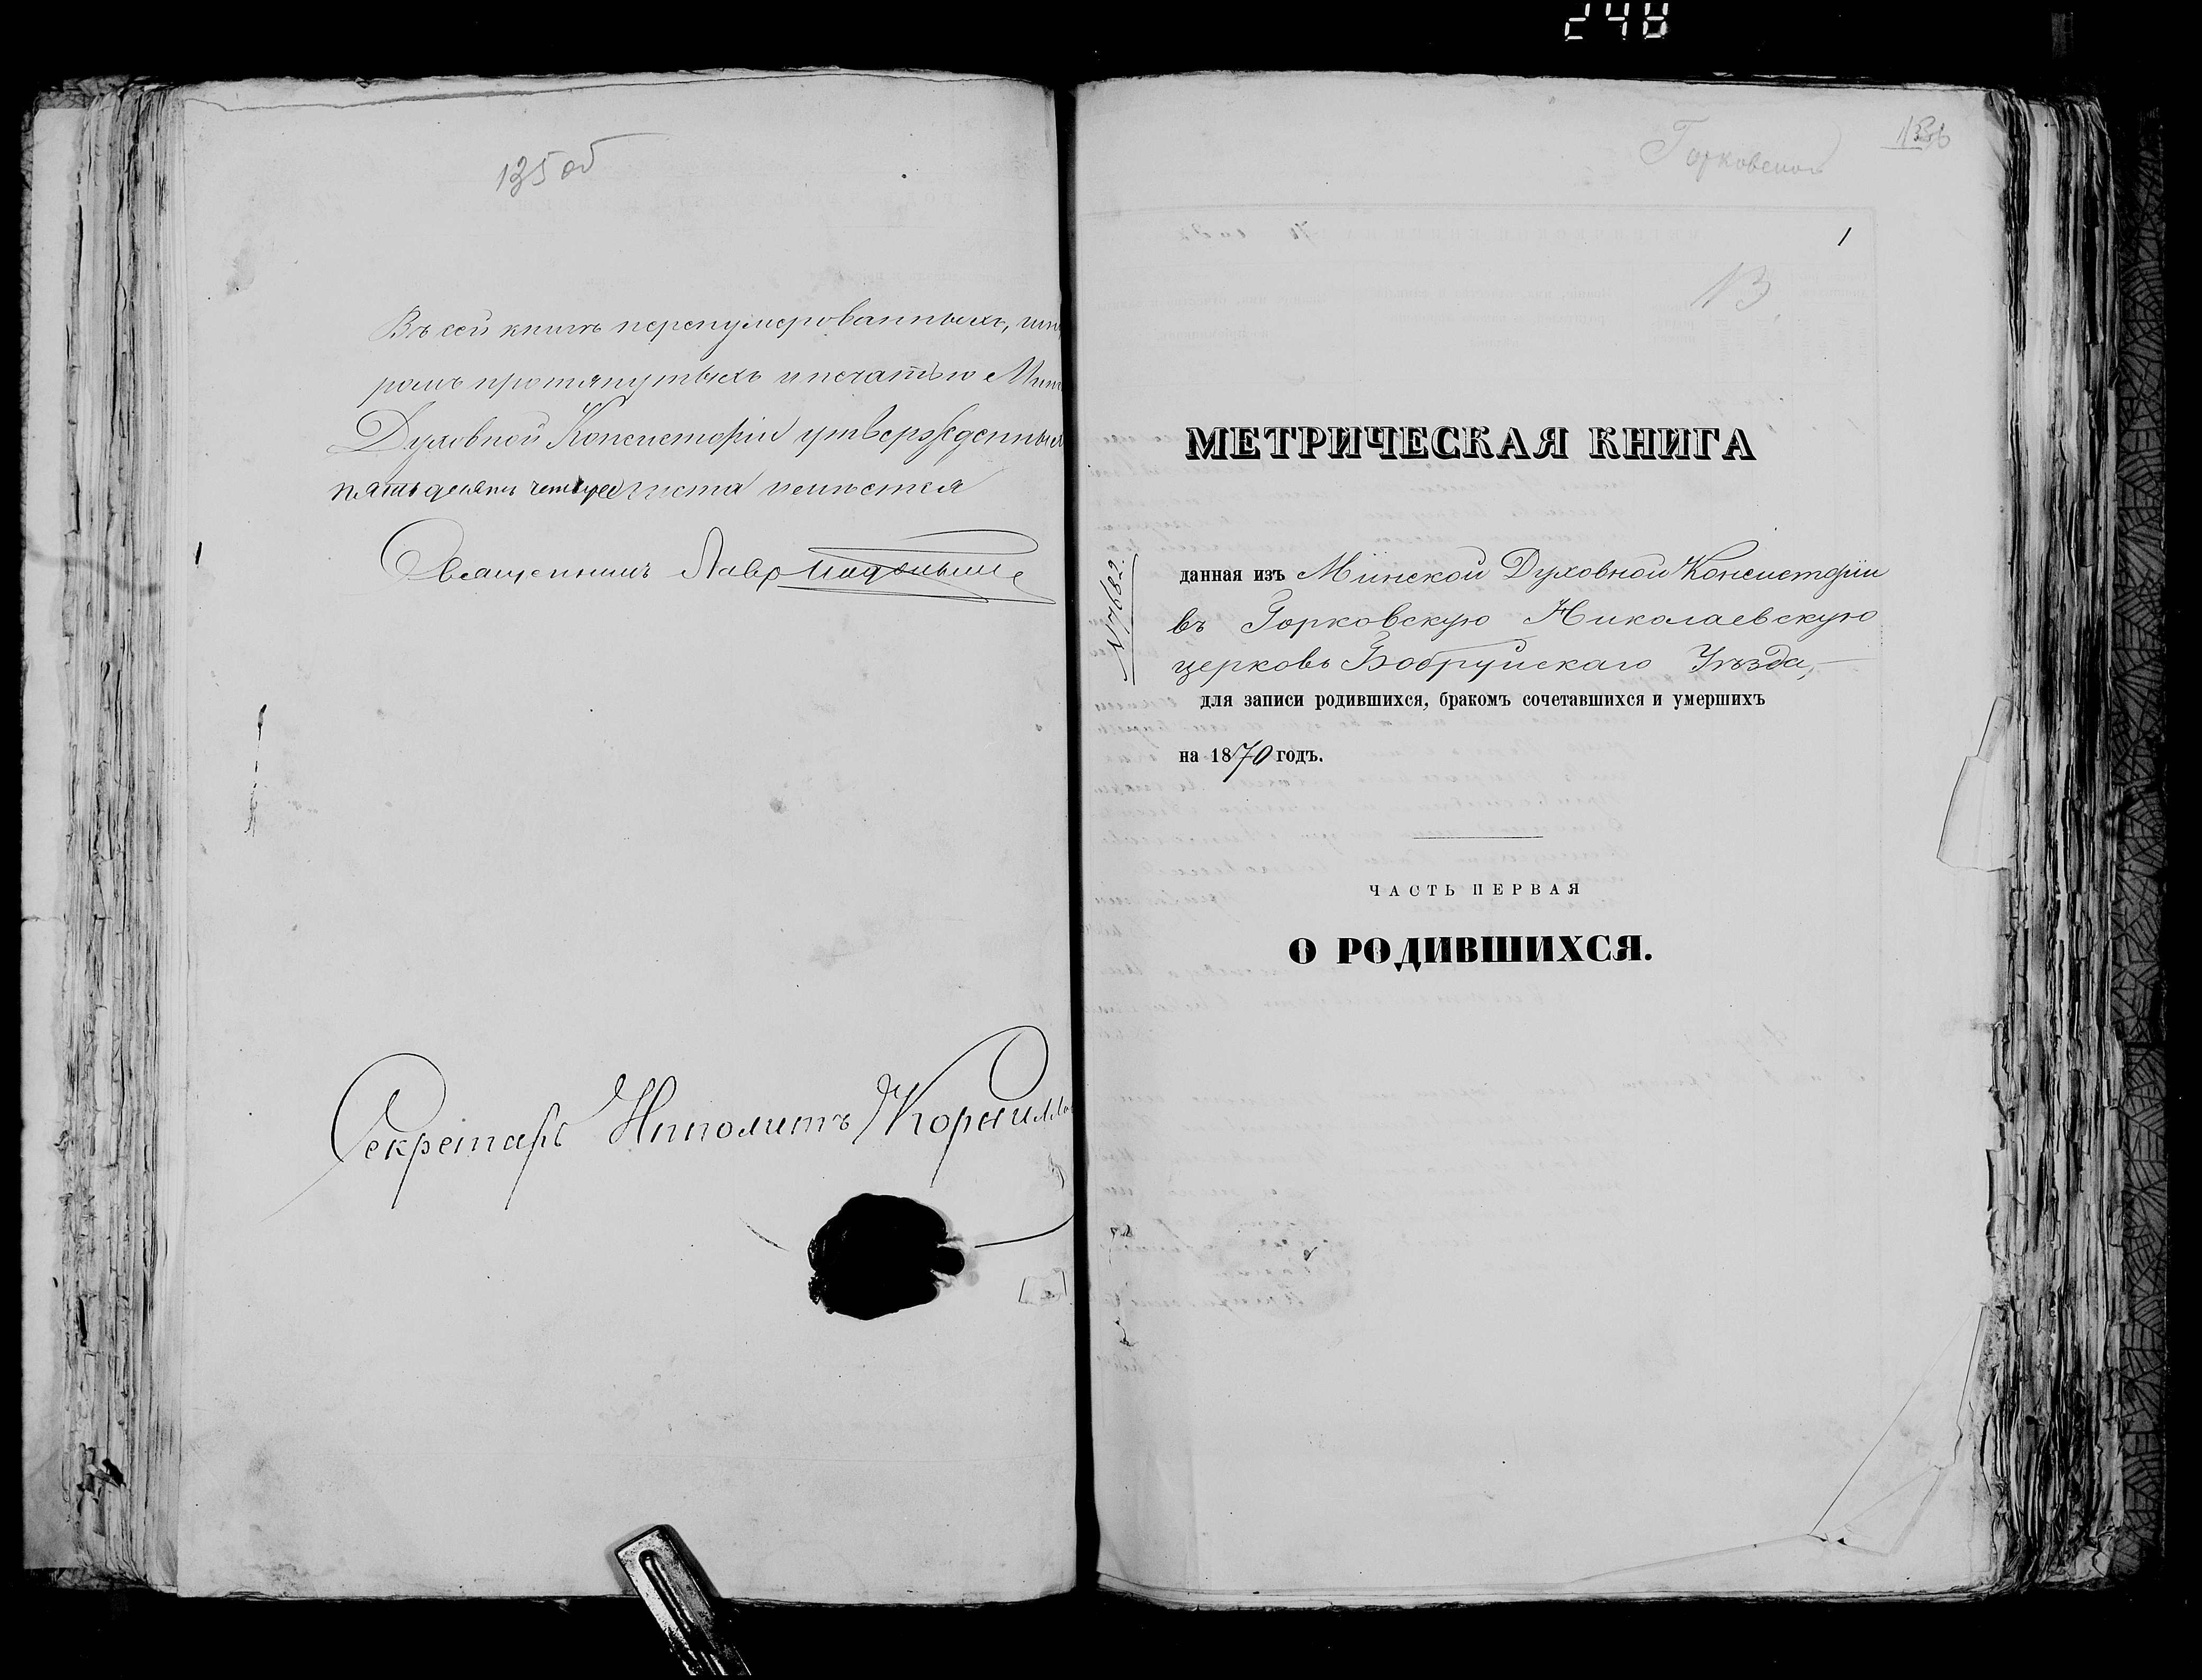 248
135 об
Въ сей книгѣ перенумерованныхъ, шну
ромъ протянутыхъ и печатью Минс
Духовной Консисторіи утвержденных
пятьдесятъ четыре листа имѣется
Священникъ Лавръ
Секретарь Ипполитъ Корнилло
Горковской
136
1
13
МЕТРИЧЕСКАЯ КНИГА
№ 7682
данная изъ Минской Духовной Консисторіи
въ Горковскую Николаевскую
церковь Бобруйскаго Уѣзда,
для записи родившихся, бракомъ сочетавшихся и умершихъ
на 1870 годъ.
ЧАСТЬ ПЕРВАЯ
О РОДИВШИХСЯ.